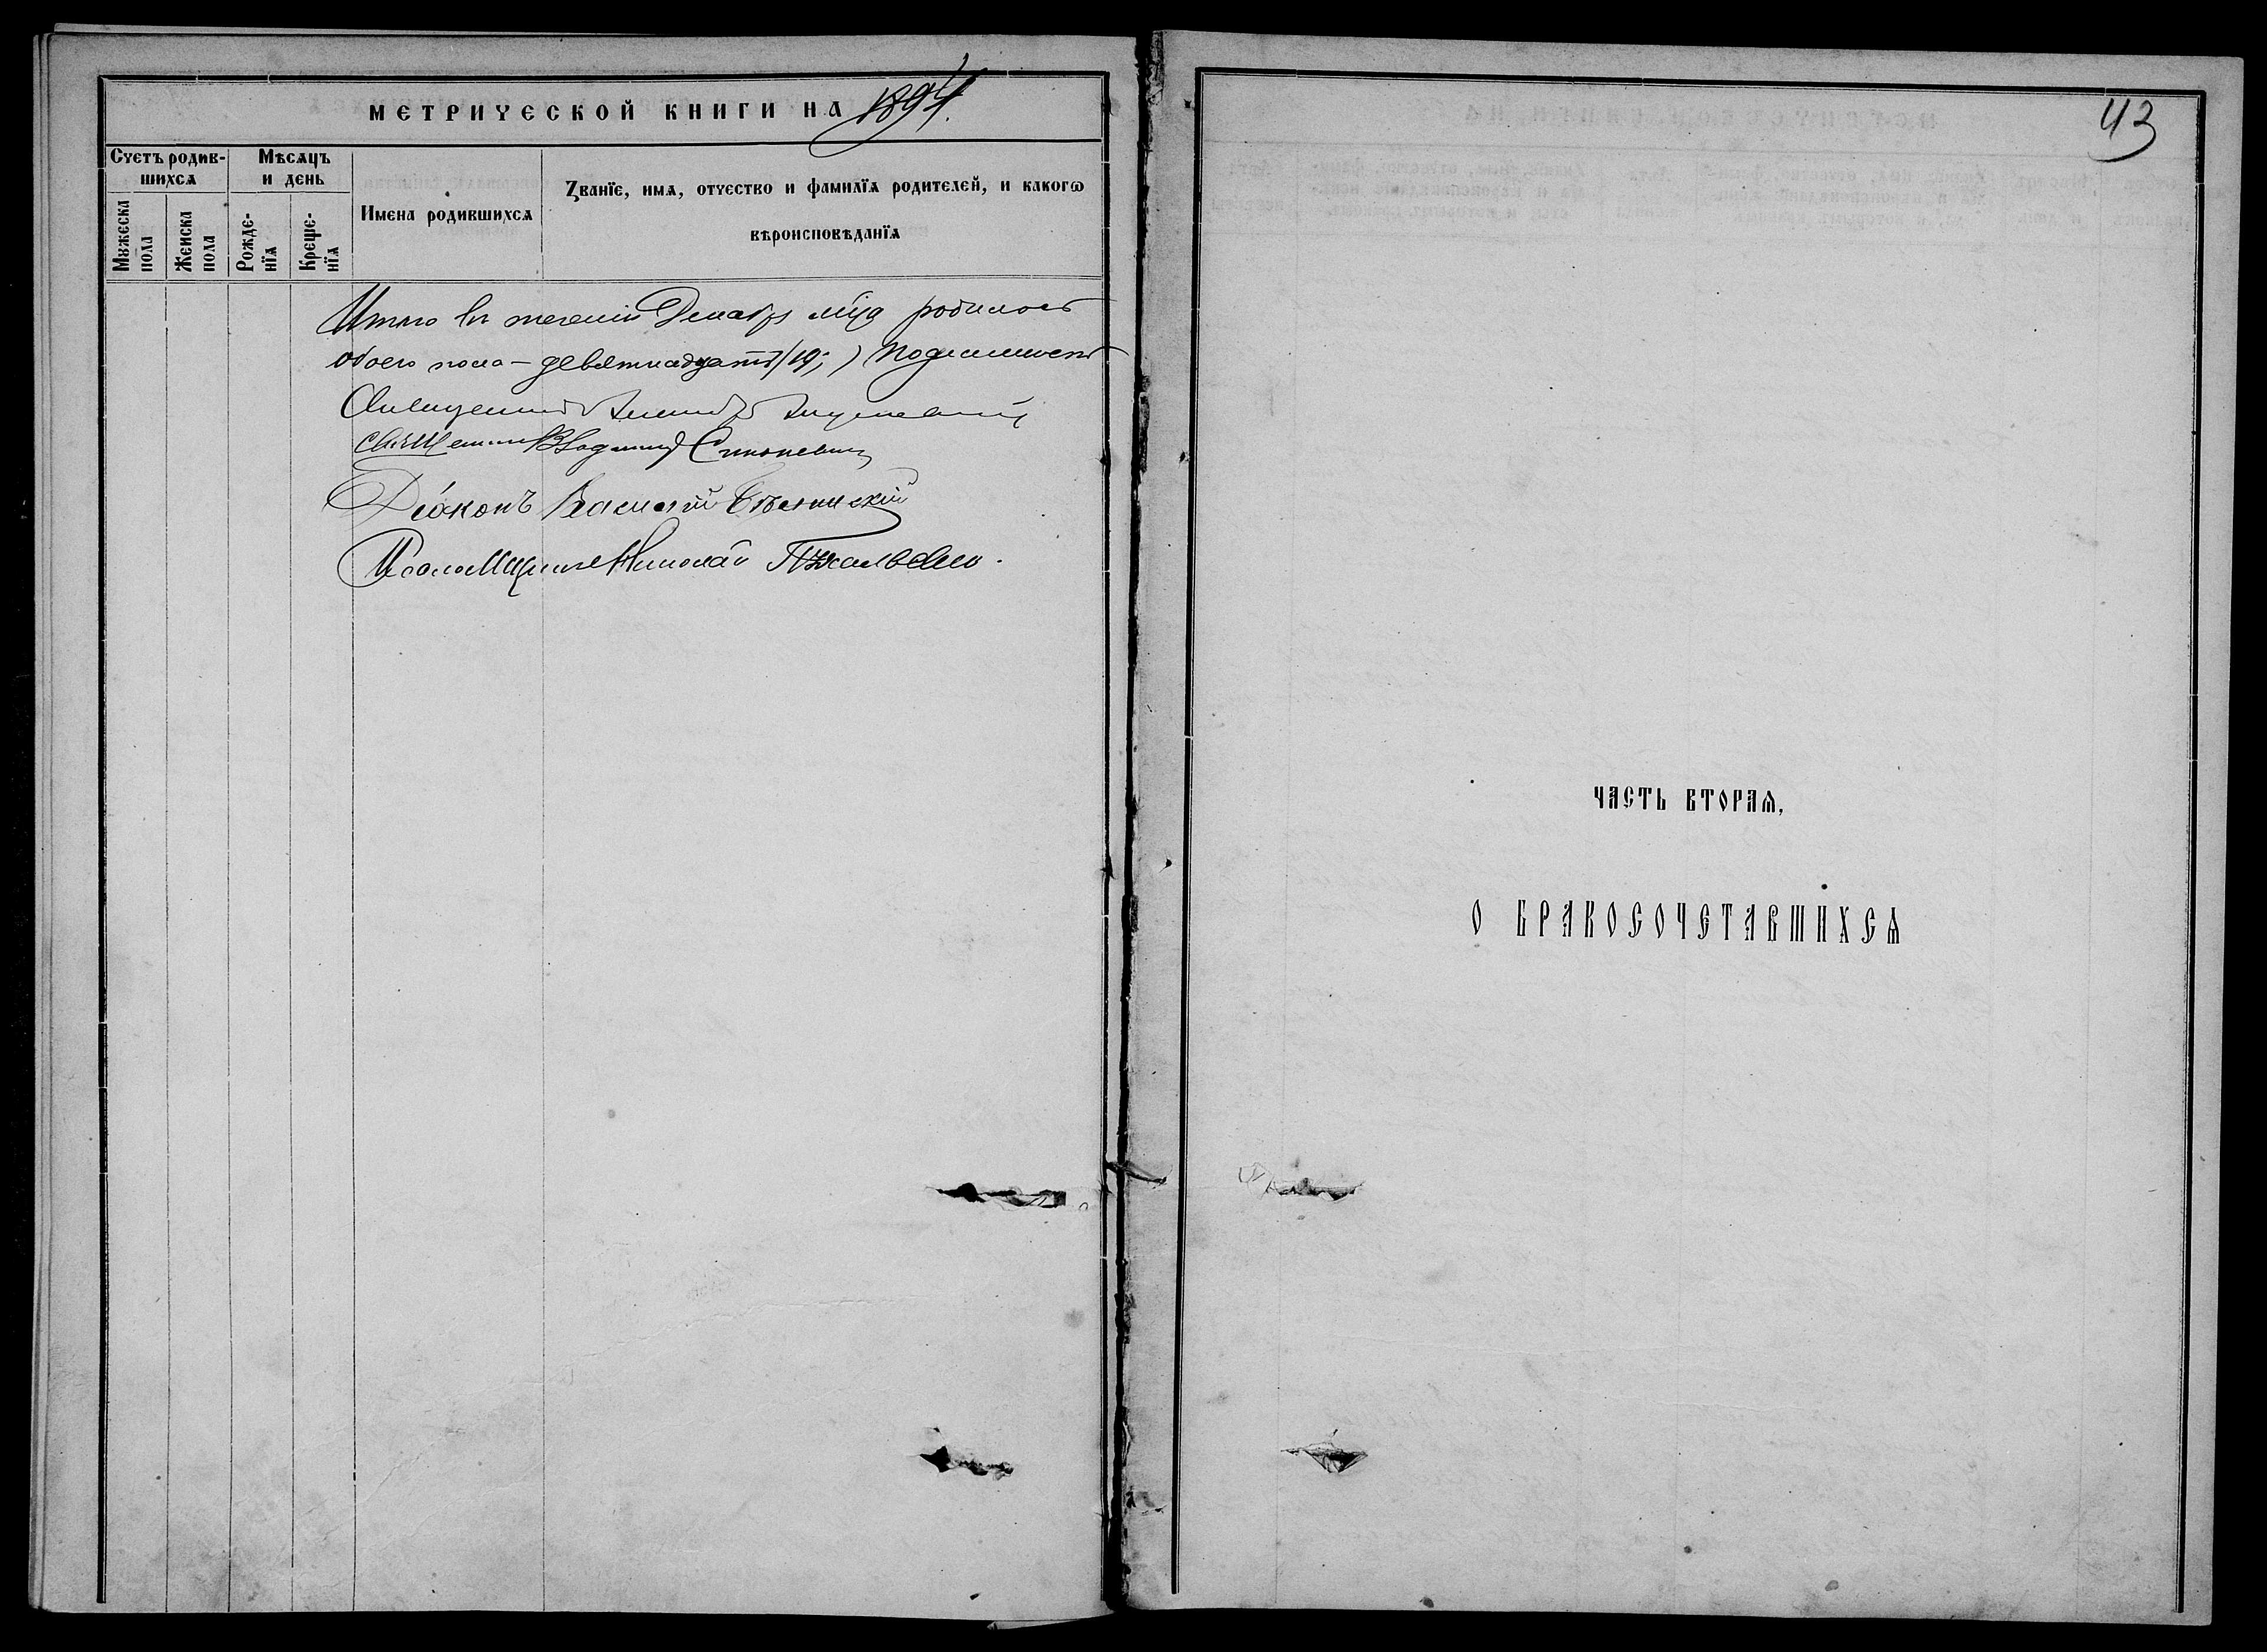 МЕТРИЧЕСКОЙ КНИГИ НА 1894.
Счетъ родив-
шихсѧ
Мѣсѧцъ
и день
Имена родившихсѧ
Званїе, имѧ, отчество и фамилїѧ родителей, и какогѡ
вѣроисповѣданїѧ
Мꙋжеска
пола
Женска
пола
Рожде-
нїѧ
Креще-
нїѧ
Итого въ теченіи Декабря мѣца родилось
обоего пола — девятнадцать (19;)
Священникъ
Священникъ Владимір
Діаконъ Василій
Псаломщикъ Николай
43
ЧАСТЬ ВТОРАѦ,
О БРАКОСОЧЕТАВШИХСѦ